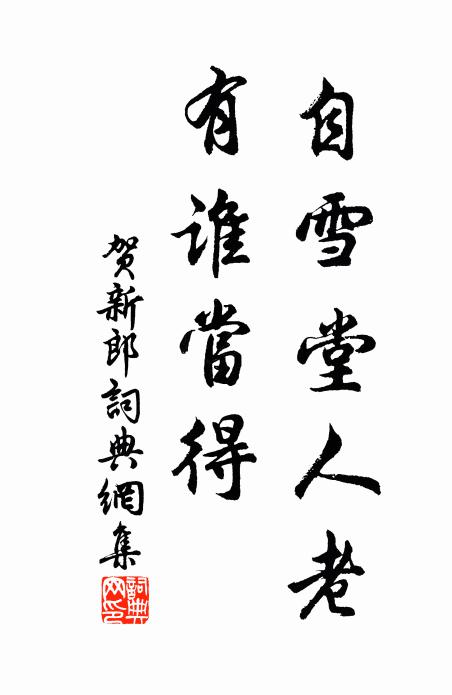 自雪堂人老
有誰當得
贺新郎詞典網集
詞典网印